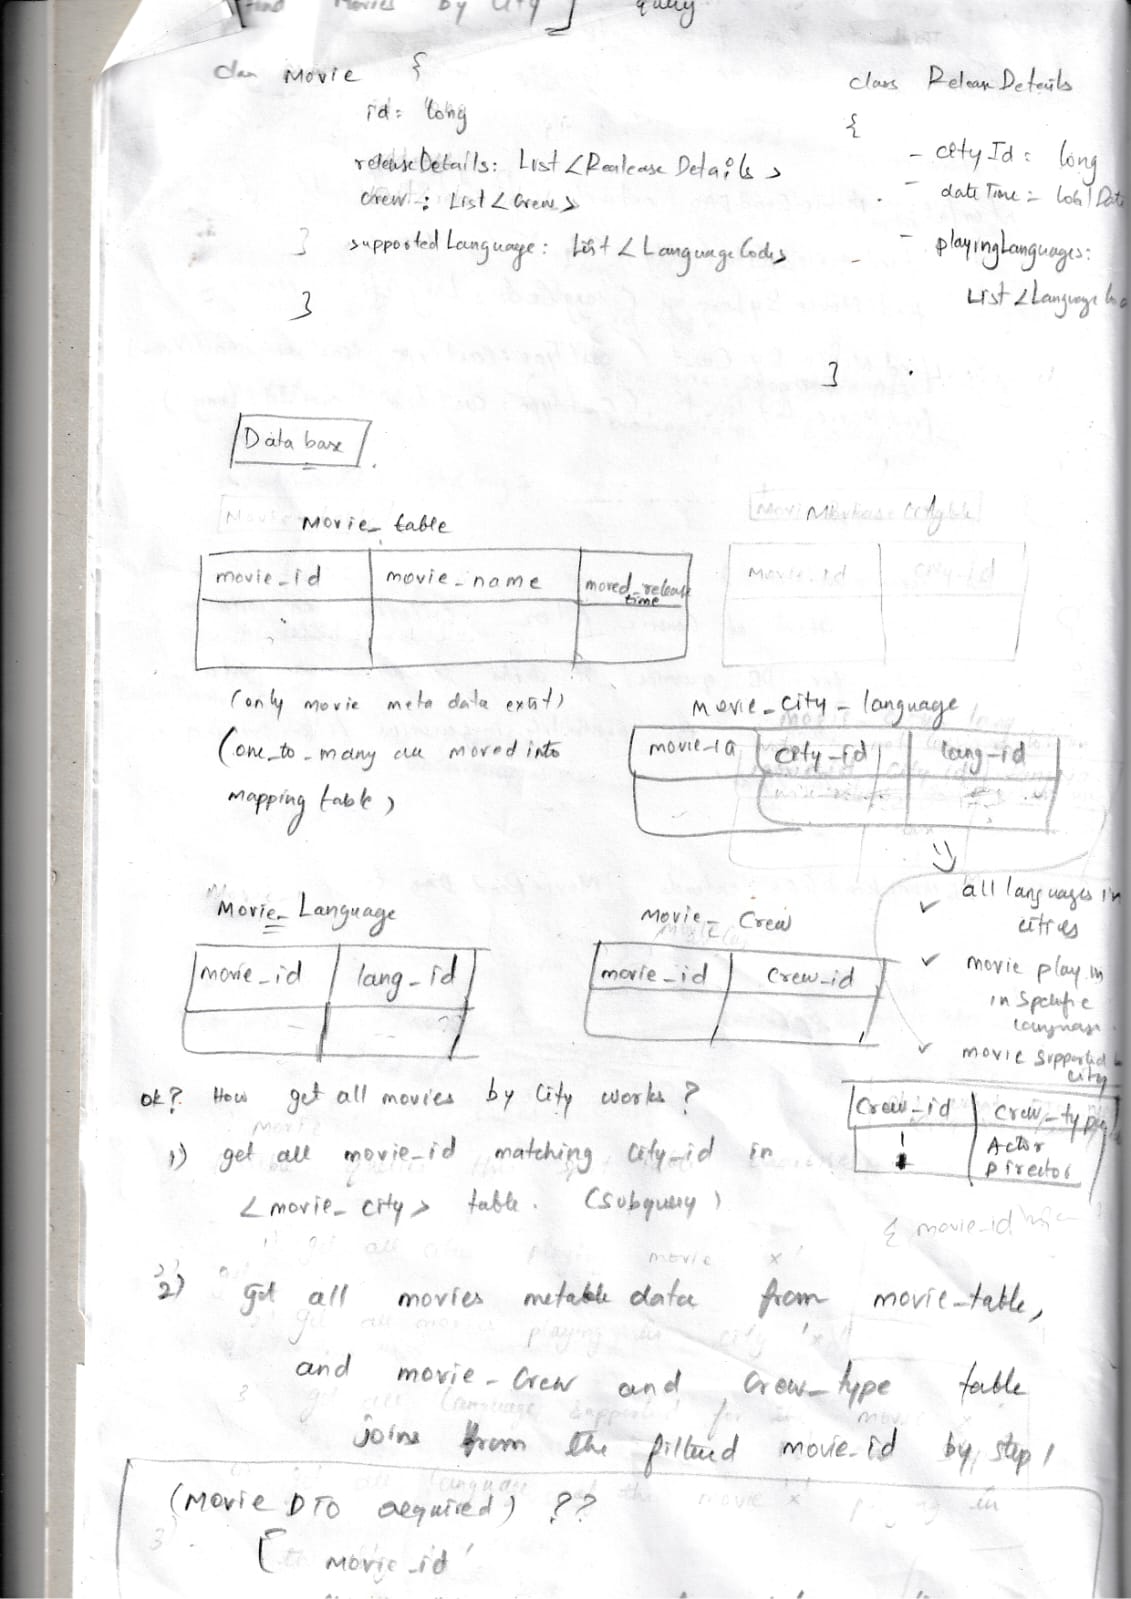 [find Movies by City] query
class Movie {
id: long
releaseDetails: List<Realease Details>
crew : List<Crew>
} supportedLanguage: List<LanguageCodes>
}
class Release Details
{
- cityId: long
- dateTime: local Date
- playingLanguages:
List<Language
}
Data base
Movie_table
movie_id movie_name moved_release
time
(only movie meta data exist)
(one_to_many all moved into
mapping table)
Movie_id city_id
movie_city_language
movie_id city_id lang_id
all languages in
cities
movie play in
in specific
language
movie supported
city
Movie_Language
movie_id lang_id
Movie_Crew
movie_id crew_id
crew_id crew_type
1 Actor
Director
ok? How get all movies by City works?
1) get all movie_id matching city_id in
<movie_city> table. (subquery)
2) get all movies metable data from movie_table,
and movie_crew and crew_type table
joins from the filtered movie_id by step 1
(Movie DTO required) ??
[ movie_id